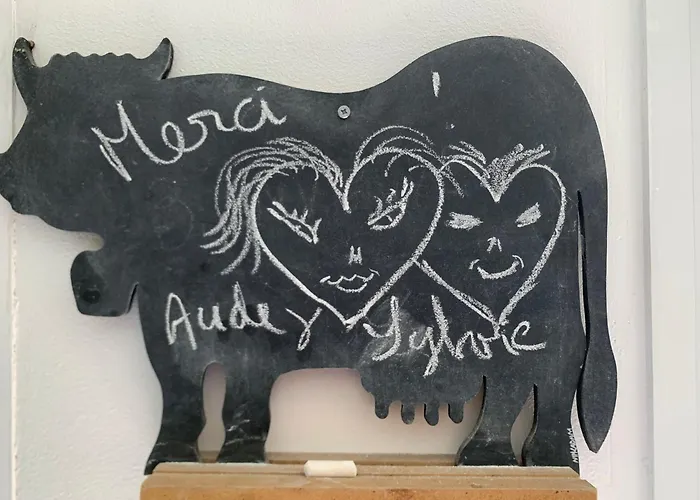 Merci
Aude y Sylvie